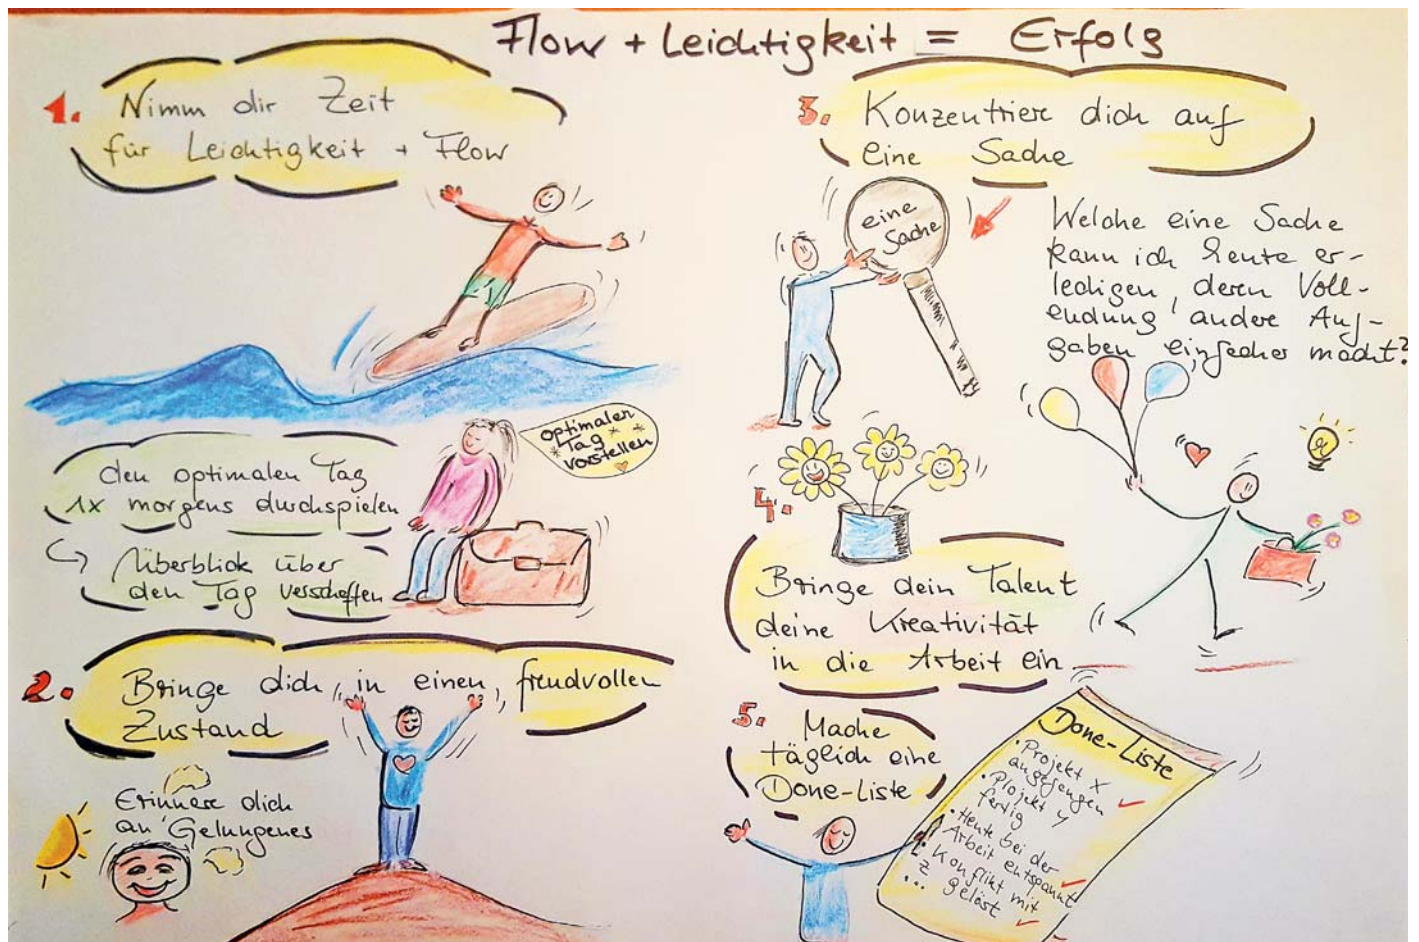 Flow + Leichtigkeit = Erfolg
1. Nimm dir Zeit
für Leichtigkeit + Flow
den optimalen Tag
1x morgens durchspielen
Überblick über
den Tag verschaffen
optimalen
Tag
vorstellen
2. Bringe dich in einen freudvollen
Zustand
Erinnere dich
an Gelungenes
3. Konzentriere dich auf
eine Sache
eine
Sache
Welche eine Sache
kann ich heute er-
ledigen, deren Voll-
endung andere Auf-
gaben einfacher macht?
4.
Bringe dein Talent
deine Kreativität
in die Arbeit ein
5. Mache
täglich eine
Done-Liste
Done-Liste
• Projekt X
angefangen
• Projekt Y
fertig
• Heute bei der
Arbeit entspannt
• Konflikt mit
Z gelöst
...